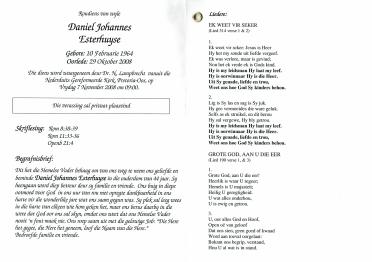 Roudiens van wyle
Daniel Johannes
Esterhuyse
Gebore: 10 Februarie 1964
Oorlede: 29 Oktober 2008
Die diens word waargeneem deur Dr. N. Lamprecht vanuit die
Nederduits Gereformeerde Kerk, op
Vrydag 7 November 2008 om 09:00.
Die terassing sal privaat plaasvind
Skriflesing: Rom 8:38-39
Rom 11:33-36
Openb 21:4
Begrafnisbrief:
Dit het die Hemelse Vader behaag om van ons weg te neem ons geliefde en
beminde Daniel Johannes Esterhuyse in die ouderdom van 44 jaar. Sy
heengaan word diep betreur deur sy familie en vriende. Ons buig in diepe
ootmoed voor God en ons wil met opregte dankbaarheid in ons
harte vir die wonderlike jare wat ons saam gegun was. Sy plek sal leeg wees
in die harte van elkeen wie hom geken het, maar ons berus daarby in die
wete dat God oor ons sal skyn, omdat ons weet dat ons Hemelse Vader
nooit 'n fout maak nie. Ons roep saam uit met die gelowige Job: "Die Here
het gegee, die Here het geneem, loof die Naam van die Here."
Bedroefde familie en vriende.
Liedere:
EK WEET VIR SEKER
(Lied 514 vers 1 & 2)
1.
Ek weet vir seker: Jesus is Heer
Hy het my sonde uit liefde vergeef.
Ek was verlore, maar is gevind;
Nou het ek vrede ek is Gods kind.
Hy is my leidsman Hy laat my leef.
Hy is oorwinnaar Hy is die Heer.
Uit Sy genade, liefde en trou,
Weet ons hoe God Sy kinders behou.
2.
Lig is Sy las en sag is Sy juk.
Hy gee vermoeides die ware geluk.
Selfs as ek struikel, en dit berou
Hy sal vergewe, Hy bly getrou.
Hy is my leidsman Hy laat my leef.
Hy is oorwinnaar Hy is die Heer.
Uit Sy genade, liefde en trou,
Weet ons hoe God Sy kinders behou.
GROTE GOD, AAN U DIE EER
(Lied 190 verse 1 & 3)
1.
Grote God, aan U die eer!
Heerlik is waar U regeer;
Hemels is U majesteit.
Heilig U geregtigheid.
U wat alles onderhou,
U is ewig en getrou.
3.
U, ons alles God en Hoof,
Open of van geloof
Dat ons sien, geen goed of kwaad
Word aan toeval oorgelaat:
Bekom ons begrip, verstand,
Hou U al wat is in stand.